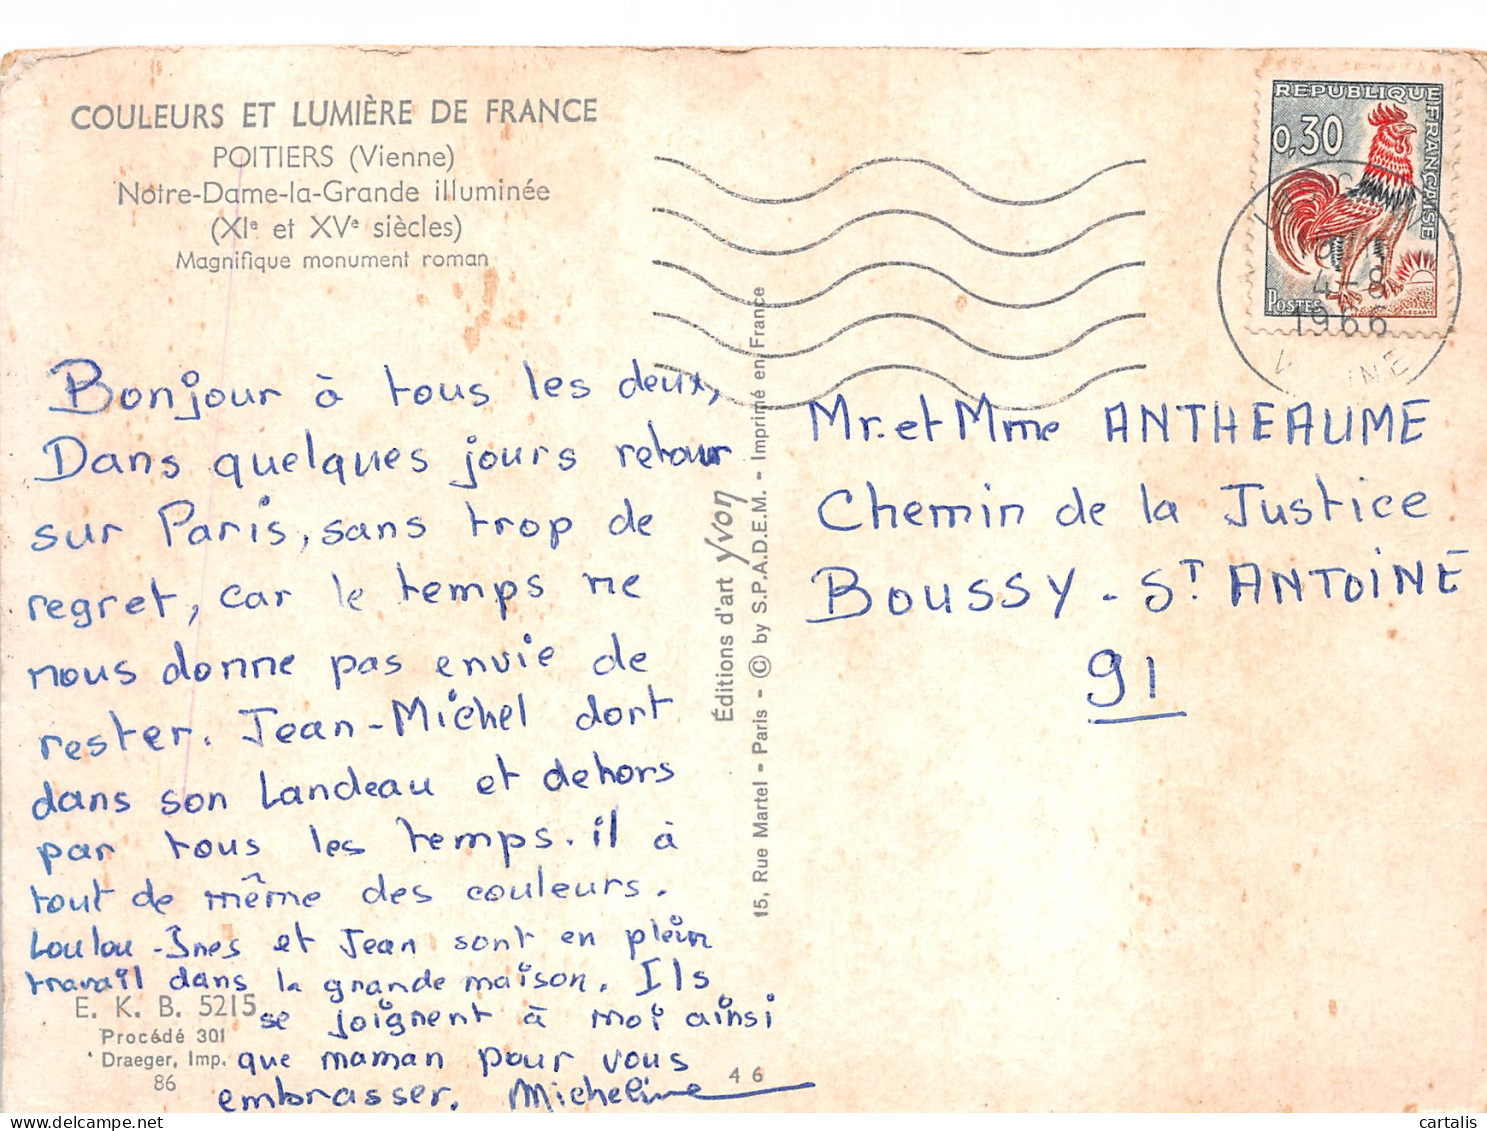 COULEURS ET LUMIÈRE DE FRANCE
POITIERS (Vienne)
Notre-Dame-la-Grande illuminée
(XIe et XVe siècles)
Magnifique monument roman
Bonjour à tous les deux,
Dans quelques jours retour
sur Paris, sans trop de
regret, car le temps ne
nous donne pas envie de
rester. Jean-Michel dort
dans son Landeau et dehors
par tous les temps. il à
tout de même des couleurs.
Loulou - Ines et Jean sont en plein
travail dans la grande maison. Ils
se joignent à moi ainsi
que maman pour vous
embrasser. Micheline
E. K. B. 5215
Procédé 301
Draeger, Imp.
86
46
Éditions d'art Yvon
15, Rue Martel - Paris - © by S.P.A.D.E.M. - Imprimé en France
REPUBLIQUE FRANÇAISE
0,30
POSTES
DECARIS
4-8
1966
Mr. et Mme ANTHEAUME
Chemin de la Justice
BOUSSY - ST ANTOINE
91
cartalis